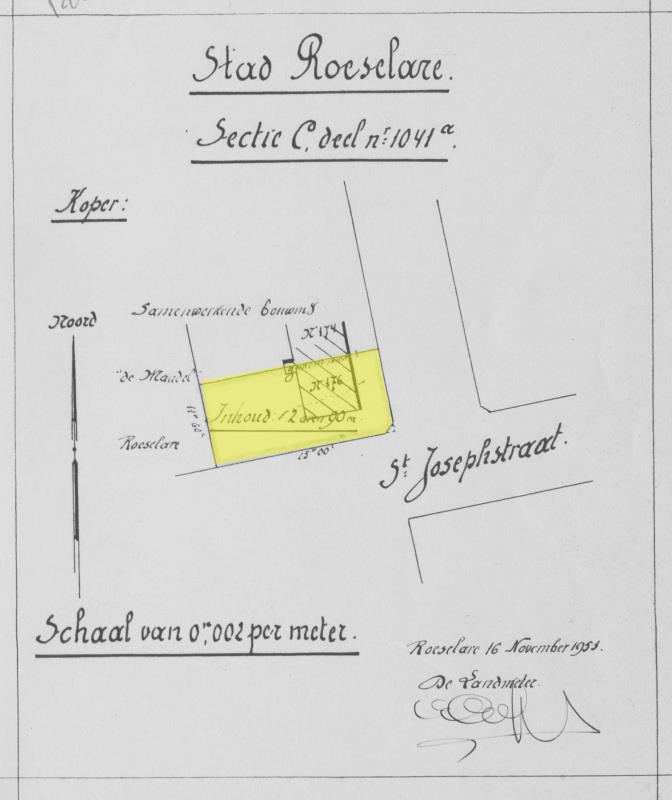 Stad Roeselare.
Sectie C, deel nr: 1041a.
Koper:
Noord
Samenwerkende bouwmij
"de Mandel"
Roeselare
Nr 174
Nr 176
Inhoud: 2 aren 90 ca
11m 60c
25m 00c
St Josephstraat.
Schaal van 0m,002 per meter.
Roeselare 16 November 1951.
De Landmeter